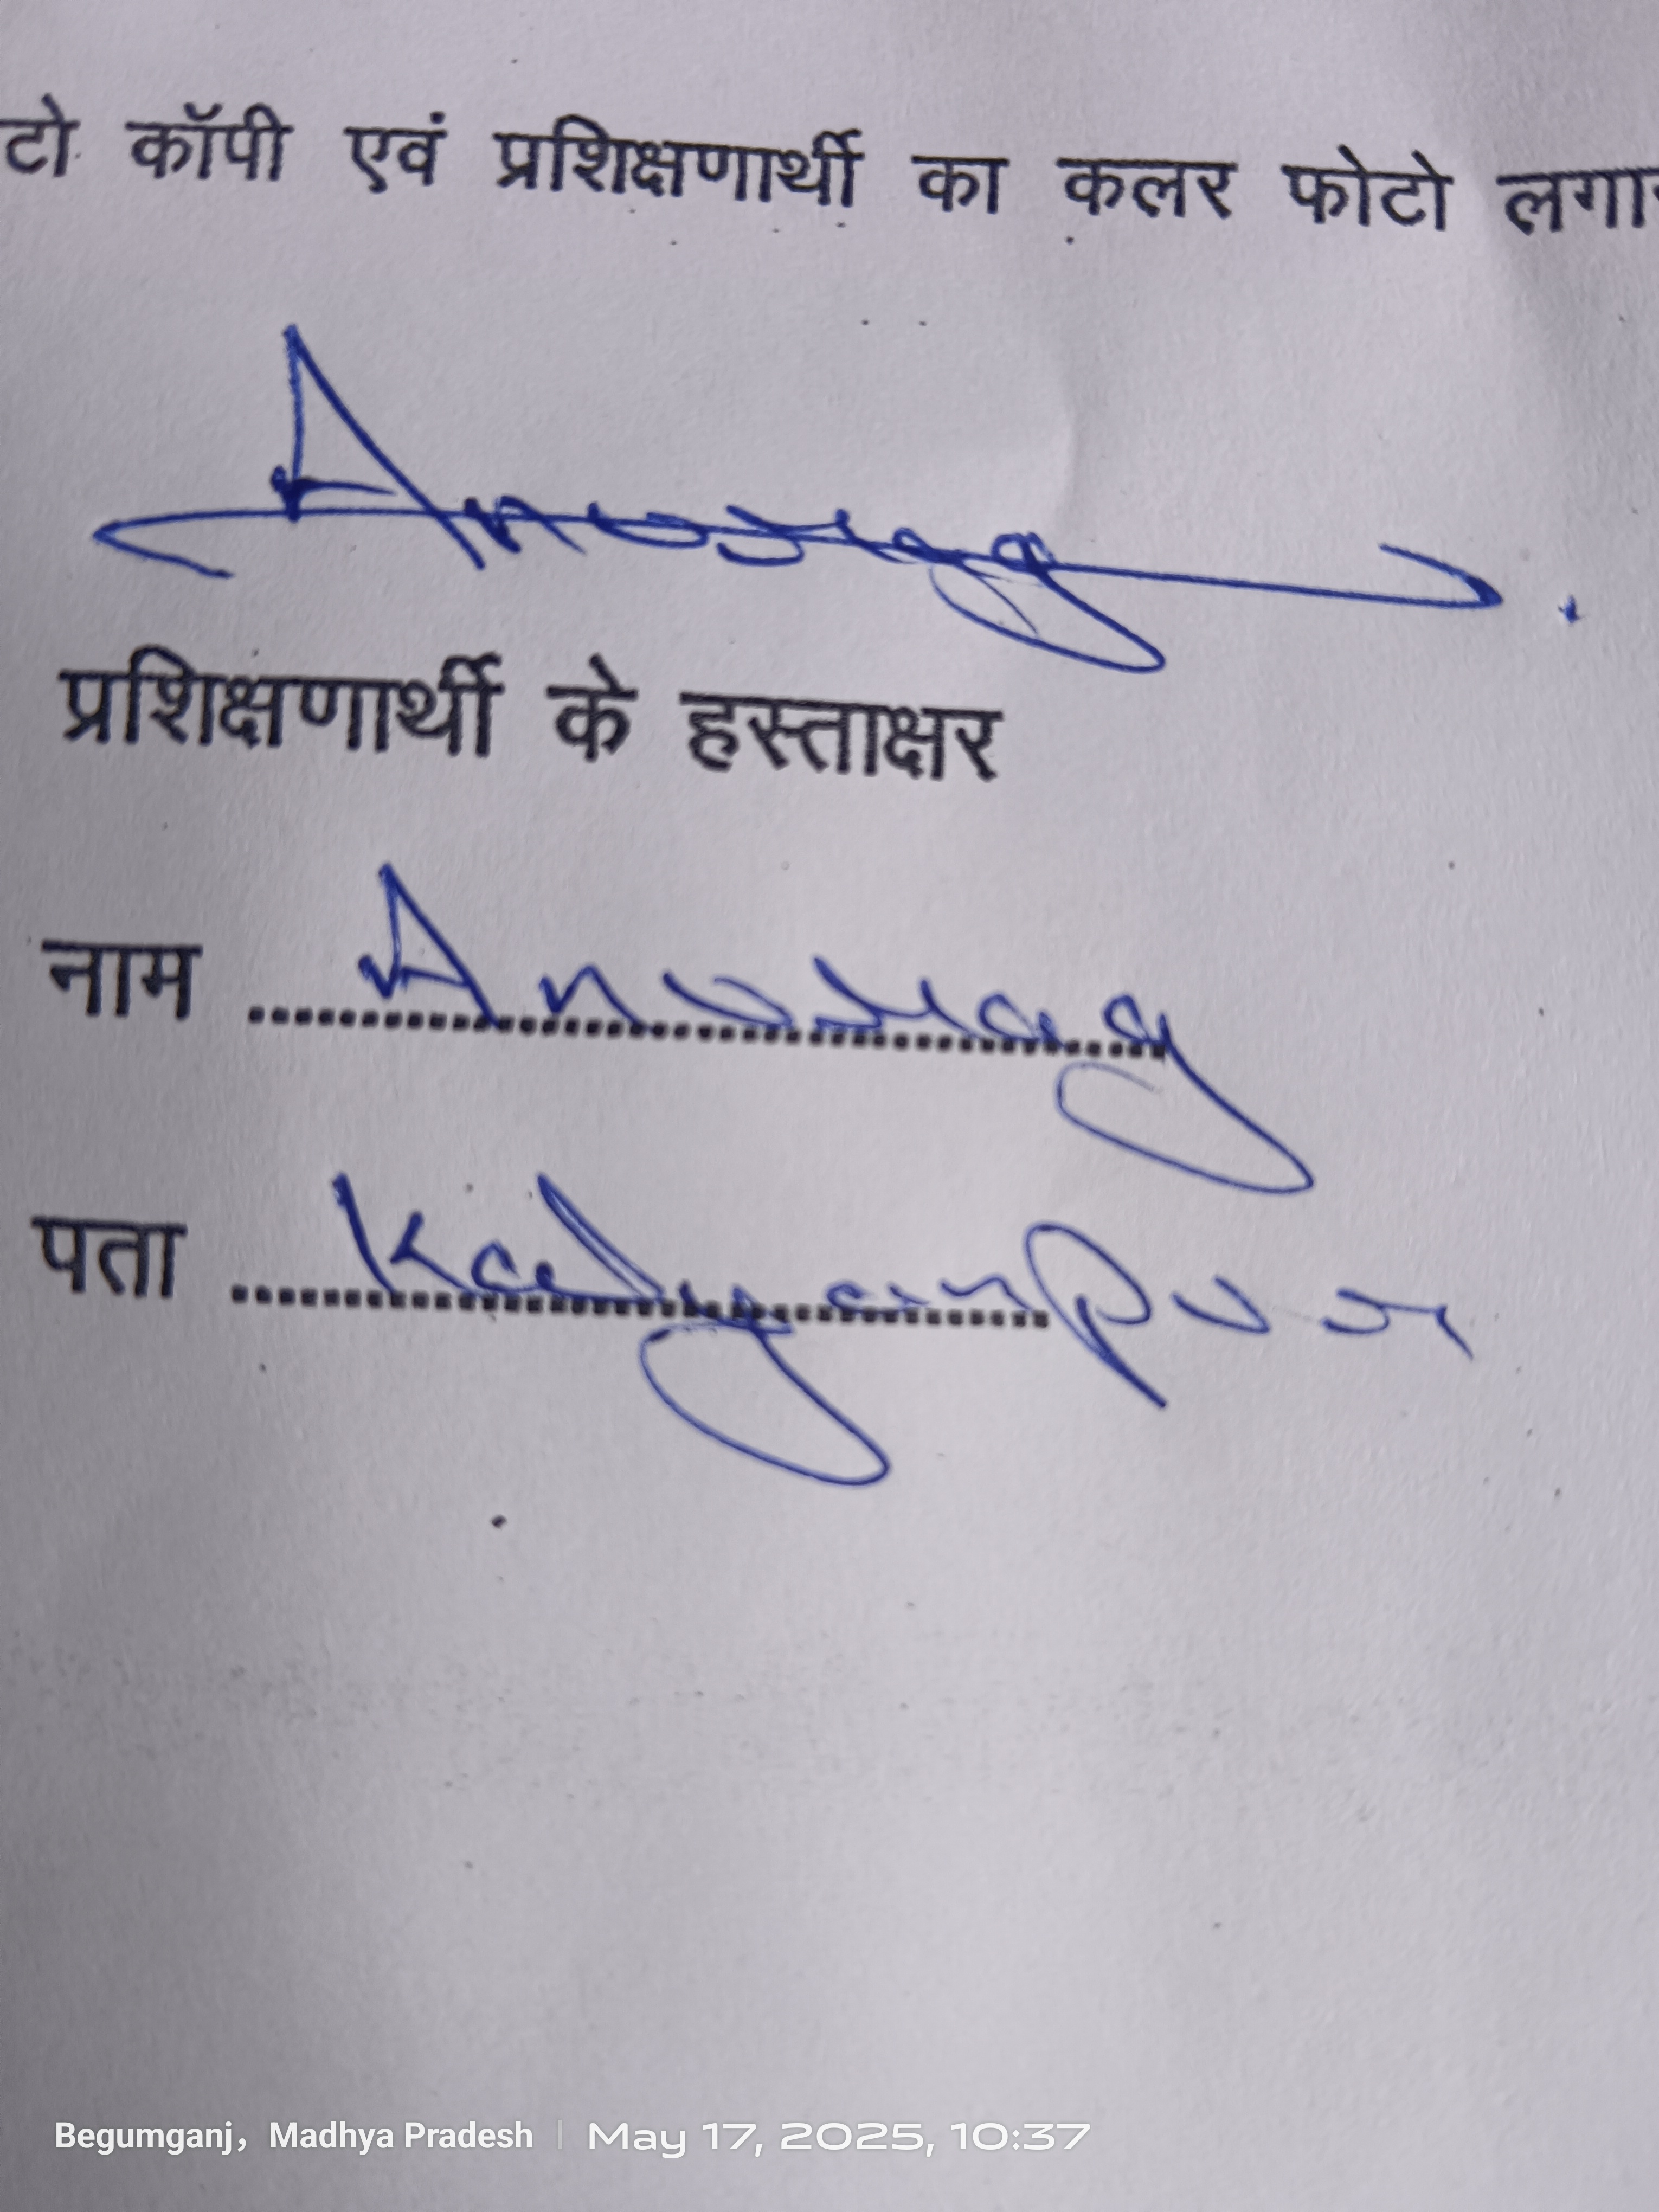 टो कॉपी एवं प्रशिक्षणार्थी का कलर फोटो लगा
Anurag
प्रशिक्षणार्थी के हस्ताक्षर
नाम Anurag
पता Kalyanpur
Begumganj, Madhya Pradesh | May 17, 2025, 10:37